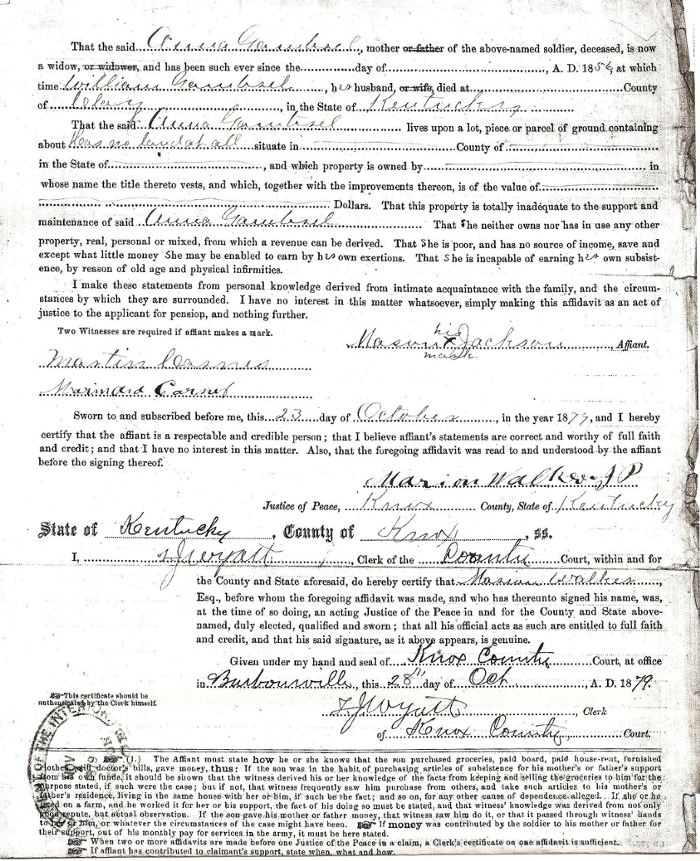 That the said Anna Gambrel, mother or father of the above-named soldier, deceased, is now
a widow, or widower, and has been such ever since the day of , A. D. 1856 at which
time William Gambrel, her husband, or wife, died at County
of Clay, in the State of Kentucky
That the said Anna Gambrel lives upon a lot, piece or parcel of ground containing
about has no land at all situate in County of
in the State of , and which property is owned by in
whose name the title thereto vests, and which, together with the improvements thereon, is of the value of
Dollars. That this property is totally inadequate to the support and
maintenance of said Anna Gambrel That She neither owns nor has in use any other
property, real, personal or mixed, from which a revenue can be derived. That She is poor, and has no source of income, save and
except what little money She may be enabled to earn by her own exertions. That She is incapable of earning her own subsist-
ence, by reason of old age and physical infirmities.
I make these statements from personal knowledge derived from intimate acquaintance with the family, and the circum-
stances by which they are surrounded. I have no interest in this matter whatsoever, simply making this affidavit as an act of
justice to the applicant for pension, and nothing further.
Two Witnesses are required if affiant makes a mark.
his
Mason x Jackson Affiant.
mark
Martin Carnes
Carnes
Sworn to and subscribed before me, this 23 day of October, in the year 1879, and I hereby
certify that the affiant is a respectable and credible person; that I believe affiant's statements are correct and worthy of full faith
and credit; and that I have no interest in this matter. Also, that the foregoing affidavit was read to and understood by the affiant
before the signing thereof.
Marion Walker JP
Justice of Peace, Knox County, State of Kentucky
State of Kentucky, County of Knox, ss.
I, Wyatt, Clerk of the County Court, within and for
the County and State aforesaid, do hereby certify that Marion Walker,
Esq., before whom the foregoing affidavit was made, and who has thereunto signed his name, was,
at the time of so doing, an acting Justice of the Peace in and for the County and State above-
named, duly elected, qualified and sworn; that all his official acts as such are entitled to full faith
and credit, and that his said signature, as it above appears, is genuine.
Given under my hand and seal of Knox County Court, at office
in Barbourville, this 28th day of Oct, A. D. 1879.
This certificate should be
authenticated by the Clerk himself.
Wyatt Clerk
of Knox County Court.
(1.) The Affiant must state how he or she knows that the son purchased groceries, paid board, paid house-rent, furnished
clothes, doctor's bills, gave money, thus: If the son was in the habit of purchasing articles of subsistence for his mother's or father's support
from his own funds, it should be shown that the witness derived his or her knowledge of the facts from keeping and selling the groceries to him for the
purpose stated, if such were the case; but if not, that witness frequently saw him purchase from others, and take such articles to his mother's or
father's residence, living in the same house with her or him, if such be the fact; and so on, for any other cause of dependence alleged. If she or he
lived on a farm, and he worked it for her or his support, the fact of his doing so must be stated, and that witness' knowledge was derived not only
from repute, but actual observation. If the son gave his mother or father money, that witness saw him do it, or that it passed through witness' hands
to her or him, or whatever the circumstances of the case might have been. If money was contributed by the soldier to his mother or father for
their support, out of his monthly pay for services in the army, it must be here stated.
When two or more affidavits are made before one Justice of the Peace in a claim, a Clerk's certificate on one affidavit is sufficient.
If affiant has contributed to claimant's support, state when, what and how.